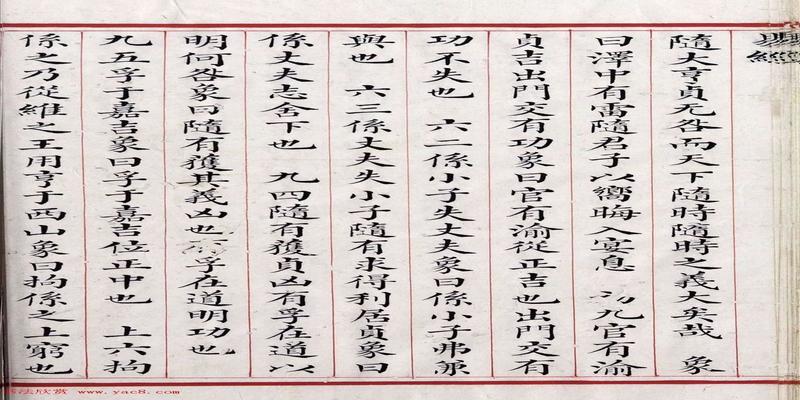 易經
隨大亨貞无咎而天下隨時隨時之義大矣哉　象
曰澤中有雷隨君子以嚮晦入宴息　初九官有渝
貞吉出門交有功象曰官有渝從正吉也出門交有
功不失也　六二係小子失丈夫象曰係小子弗兼
與也　六三係丈夫失小子隨有求得利居貞象曰
係丈夫志舍下也　九四隨有獲貞凶有孚在道以
明何咎象曰隨有獲其義凶也有孚在道明功也
九五孚于嘉吉象曰孚于嘉吉位正中也　上六拘
係之乃從維之王用亨于西山象曰拘係之上窮也
法欣赏 www.yac8.com